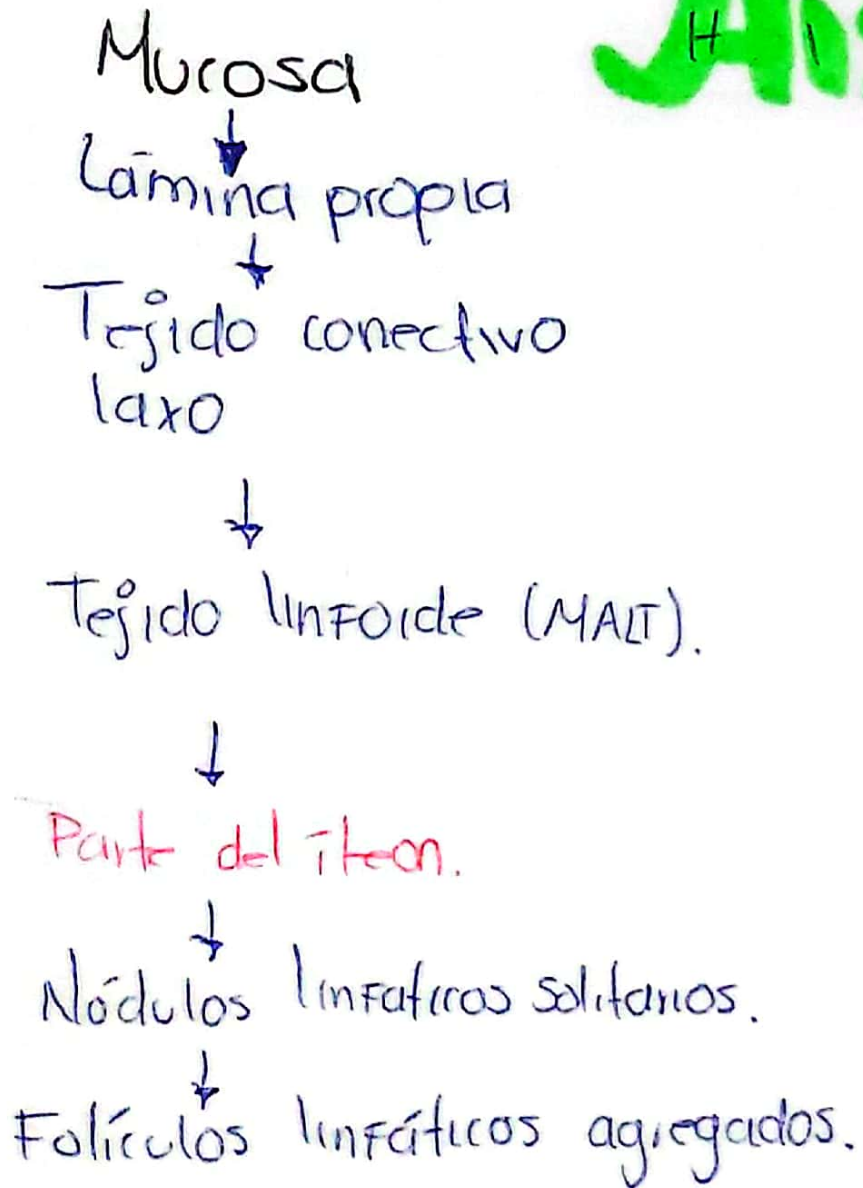 Mucosa
Lámina propia
Tejido conectivo
laxo
Tejido linfoide (MALT).
Parte del íleon.
Nódulos linfaticos solitarios.
Folículos linfáticos agregados.